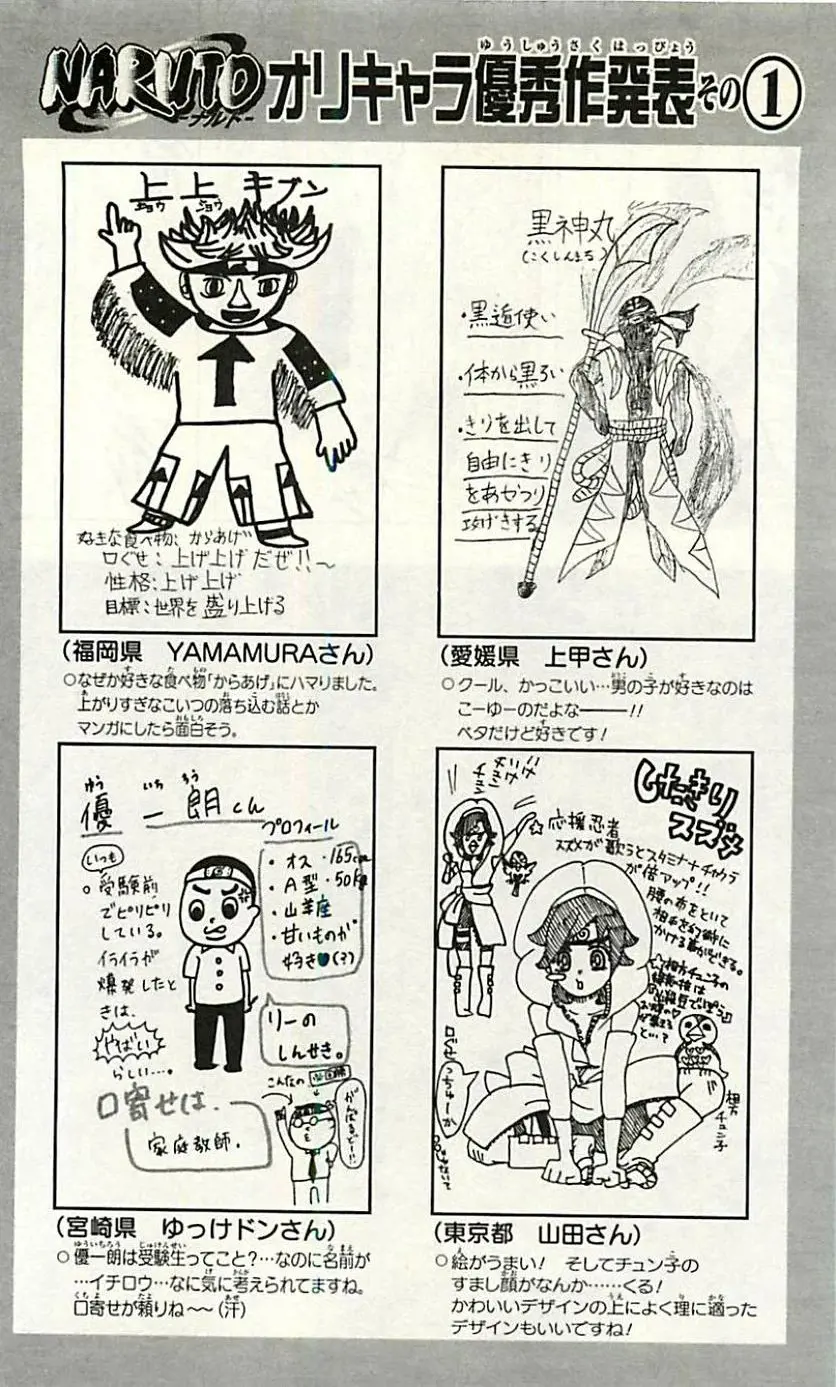 NARUTO
ーナルトー
オリキャラ優秀作発表その①
ゆうしゅうさくはっぴょう
上上 キブン
ジョウ ジョウ
好きな食べ物：からあげ
口ぐせ：上げ上げだぜ!!～
性格：上げ上げ
目標：世界を盛り上げる
(福岡県 YAMAMURAさん)
○なぜか好きな食べ物「からあげ」にハマりました。
上がりすぎなこいつの落ち込む話とか
マンガにしたら面白そう。
黒神丸
(こくしんまる)
・黒遁使い
・体から黒ろい
・きりを出して
自由にきり
をあやつり
攻げきする
(愛媛県 上甲さん)
○クール、かっこいい…男の子が好きなのは
こーゆーのだよな―――!!
ベタだけど好きです!
ゆう いち ろう
優一朗くん
いつも
。受験前
でピリピリ
している。
イライラが
爆発したと
きは、
やばい
らしい…。
プロフィール
・オス ・165cm
・A型 ・50kg
・山羊座
・甘いものが
好き♥(?)
リーの
しんせき。
口寄せは、
家庭教師。
こんなの
がんばるぞー!!
(宮崎県 ゆっけドンさん)
○優一朗は受験生ってこと?…なのに名前が
…イチロウ…なに気に考えられてますね。
口寄せが頼りね～～(汗)
したきり
スズメ
☆応援忍者
スズメが歌うとスタミナ+チャクラ
が倍アップ!!
腰の布をといて
相手を幻術に
かける事ができる。
口ぐせ
っちゅーか
相方
チュン子
(東京都 山田さん)
○絵がうまい! そしてチュン子の
すまし顔がなんか……くる!
かわいいデザインの上によく理に適った
デザインもいいですね!